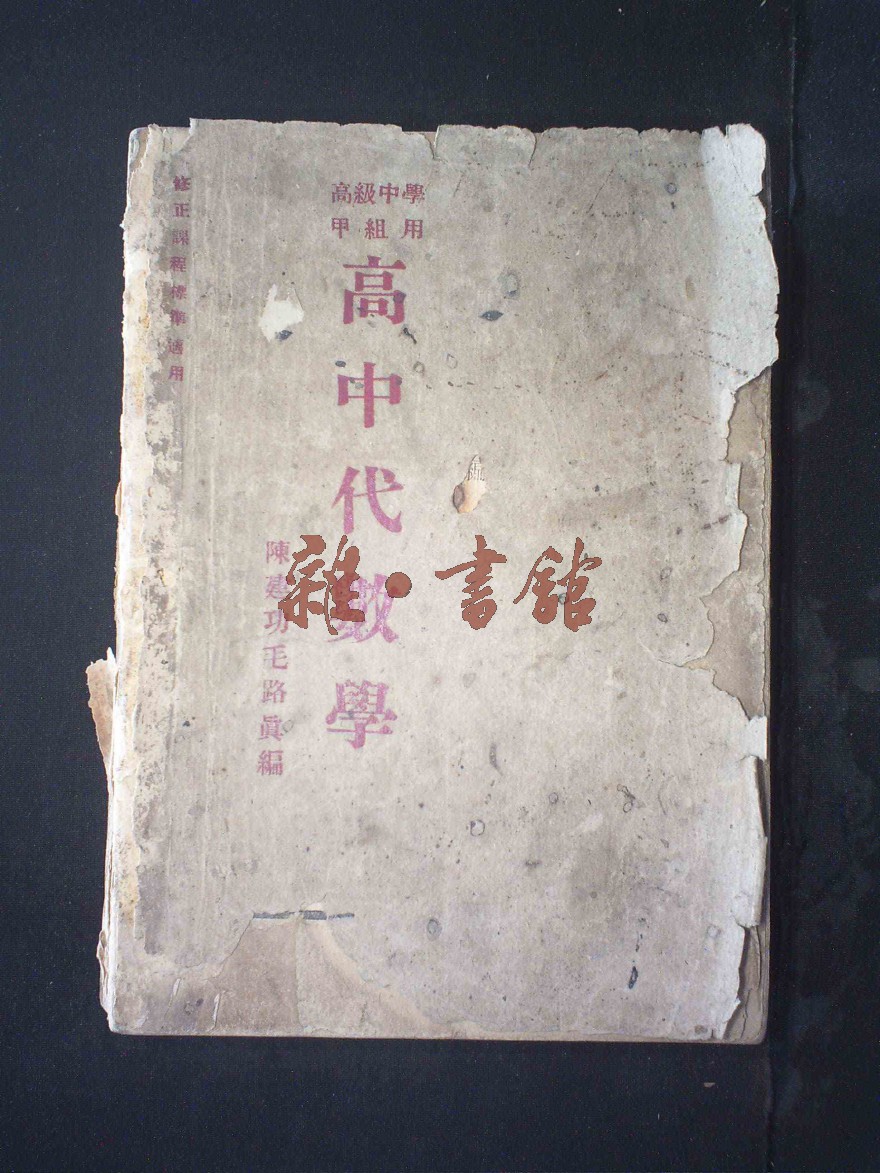 高級中學
甲組用
高中代數學
陳建功毛路眞編
修正課程標準適用
雜·書館